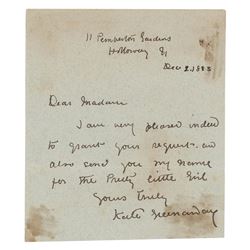 11 Pemberton Gardens
Holloway N
Dec 2. 1883
Dear Madam
I am very pleased indeed
to grant your request and
also send you my name
for the Pretty little Girl
Yours truly
Kate Greenaway